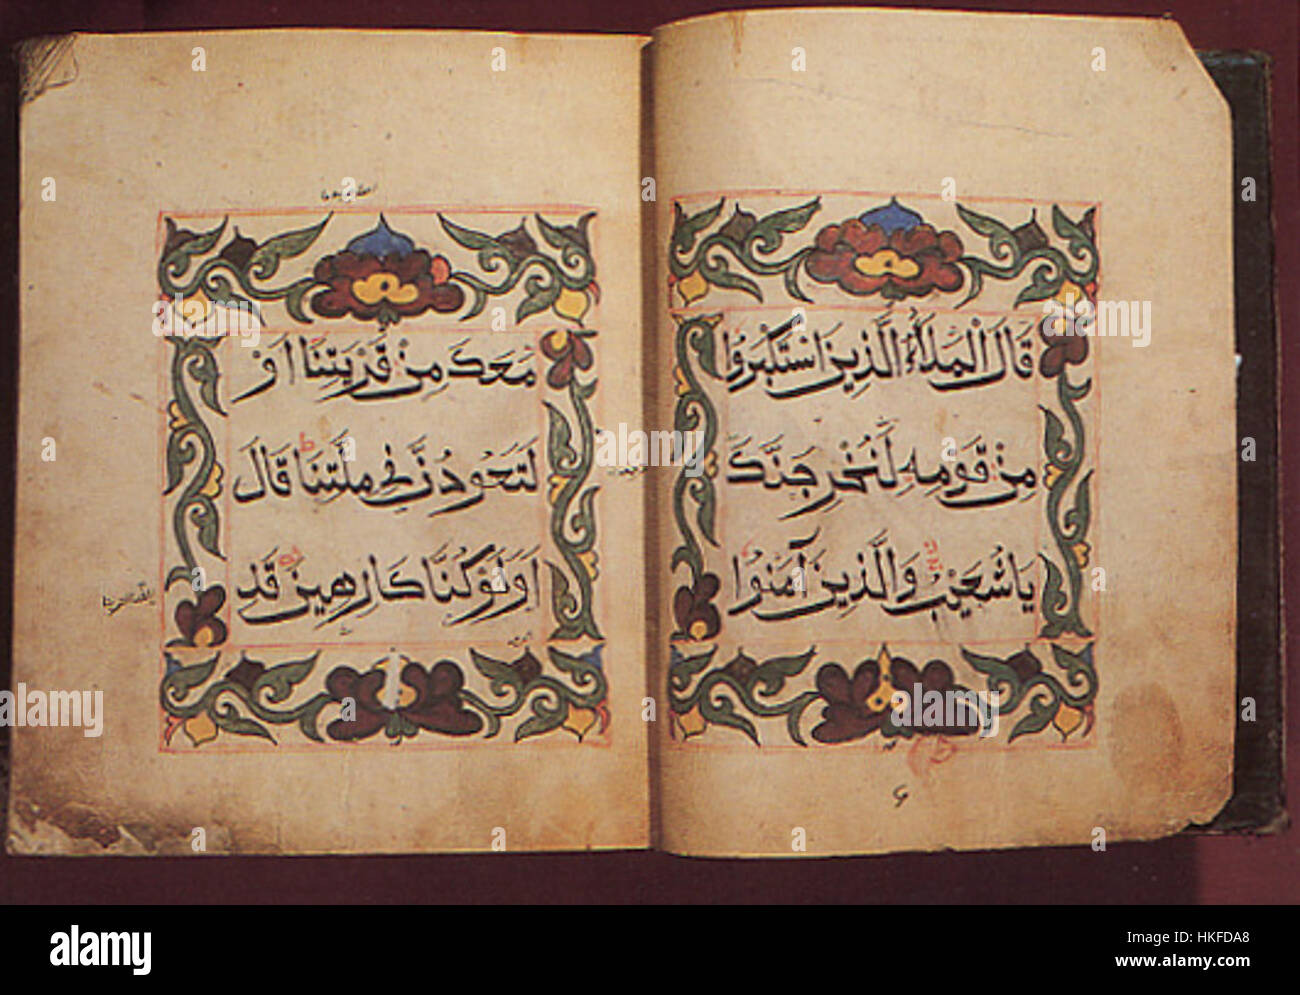 قَالَ الْمَلَأُ الَّذِينَ اسْتَكْبَرُوا
مِنْ قَوْمِهِ لَنُخْرِجَنَّكَ
يَا شُعَيْبُ وَالَّذِينَ آمَنُوا
مَعَكَ مِنْ قَرْيَتِنَا أَوْ
لَتَعُودُنَّ فِي مِلَّتِنَا قَالَ
أَوَلَوْ كُنَّا كَارِهِينَ قَدِ
a alamy stock photo
alamy stock photo
HKFDA8
www.alamy.com